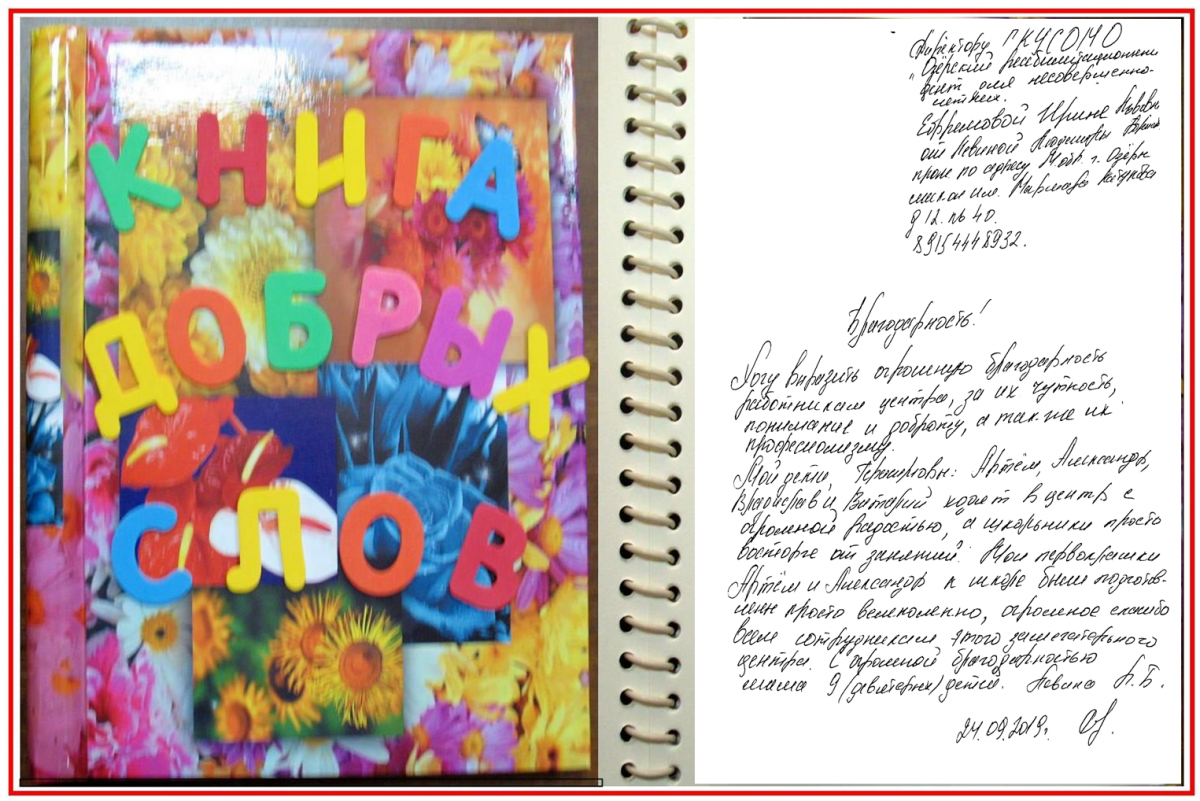 КНИГА
ДОБРЫХ
СЛОВ
Директору ГКУСОМО
"Озёрский реабилитационный
цент для несовершенно-
летних.
Ефремовой Ирине
от Невиной
прож по адресу Моск. г. Озёры
м-он им. Маршала Катукова
д 12. кв 40.
89154448932.
Благодарность!
Хочу выразить огромную благодарность
работникам центра, за их чуткость,
понимание и доброту, а так же их
Мои дети, Артём, Александр,
Владислав и Виталий ходят в центр с
огромной радостью, а школьники просто
восторге от занятий. Мои первоклашки
Артём и Александр к школе были подготов-
лены просто великолепно, огромное спасибо
всем сотрудникам этого замечательного
центра. С огромной благодарностью
мама 9 (девятерых) детей. Невина Л.Б.
24.09.2019г.